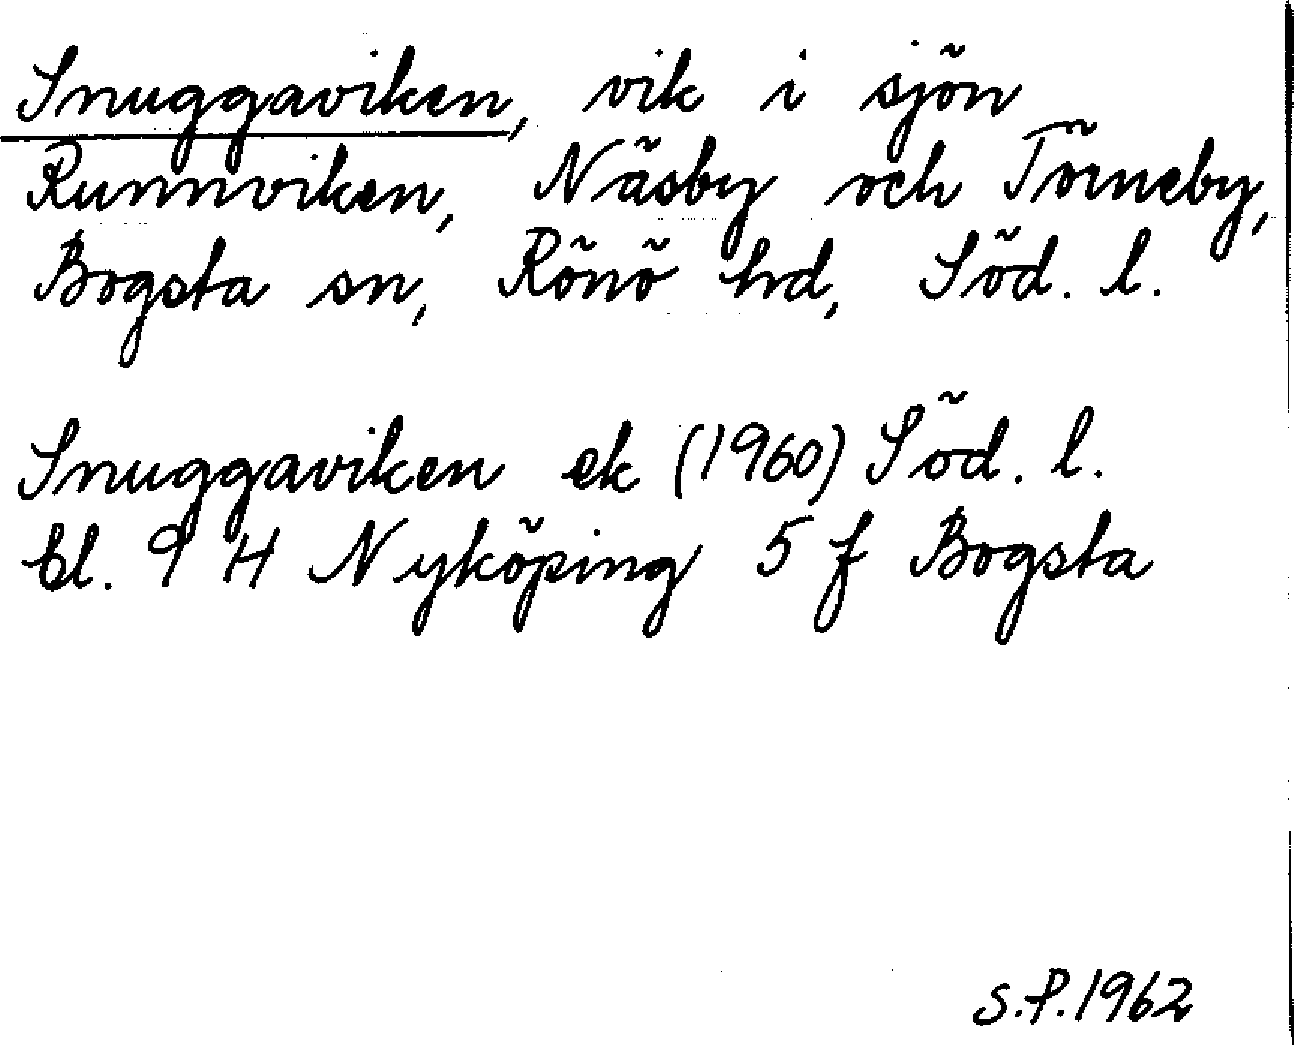 Snuggaviken, vik i sjön
Runnviken, Näsby och Törneby,
Bogsta sn, Rönö hd, Söd. l.
Snuggaviken ek (1960) Söd. l.
bl. 9 H Nyköping 5 f Bogsta
S.P. 1962